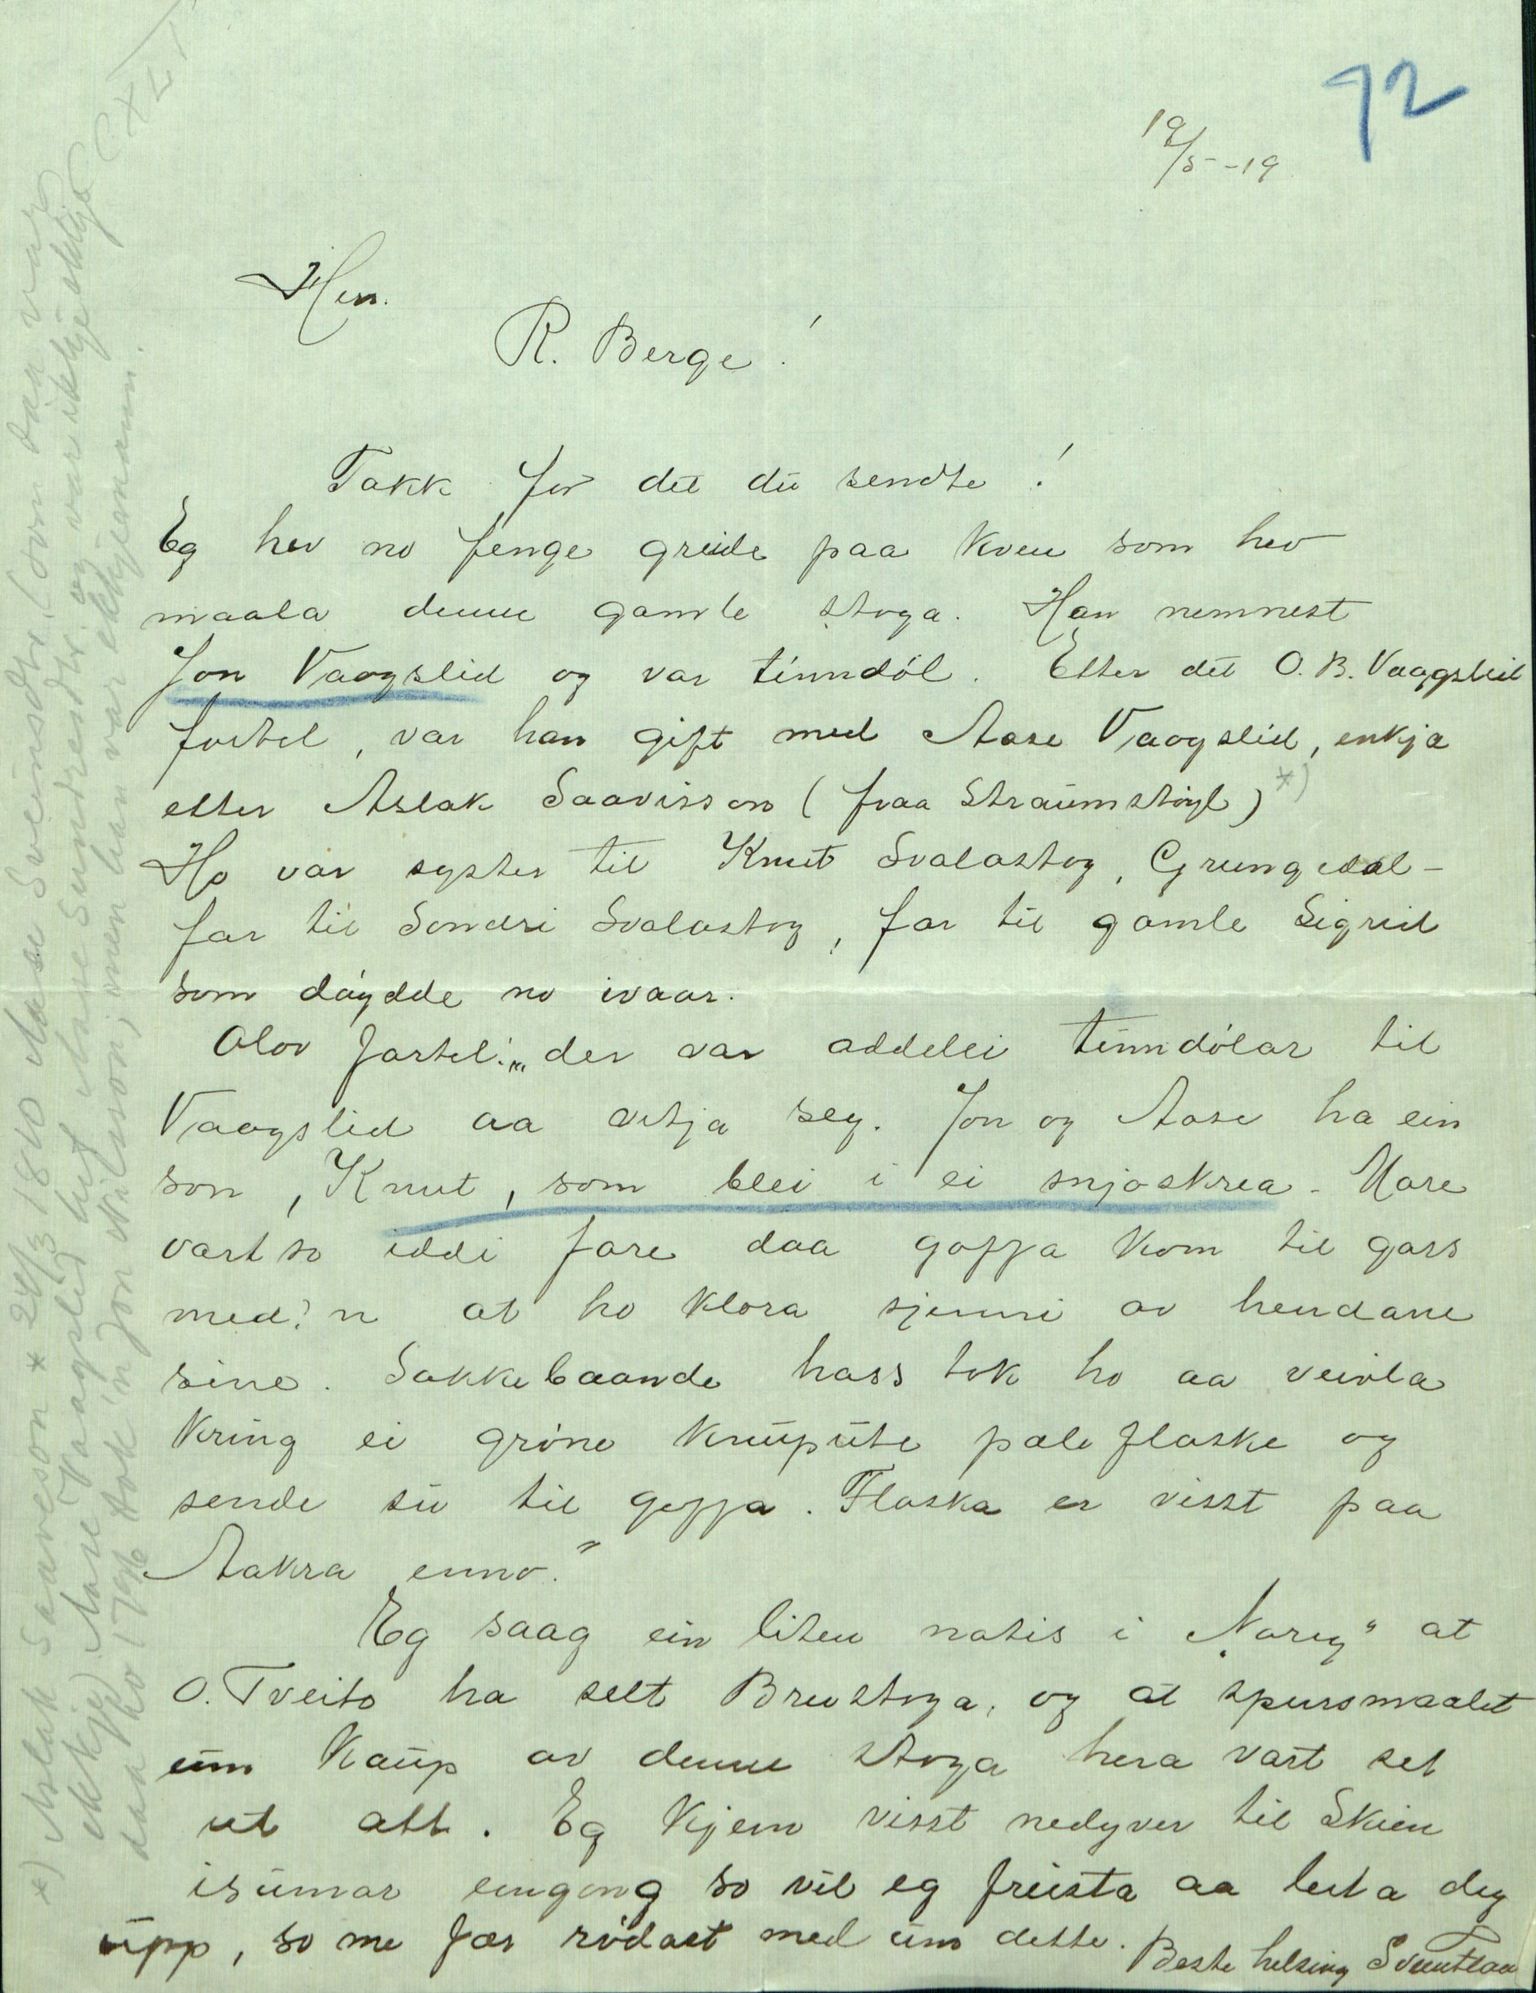 92
19/5-19
Herr.
R. Berge!
Takk for det du sendte!
Eg hev no fenge greide paa kven som hev
maala denne gamle stoga. Han nemnest
Jon Vaagslid og var tinndøl. Etter det O.B. Vaagslid
fortel, var han gift med Aase Vaagslid, enkja
etter Aslak Saavisson (fraa Straumstøyl) *)
Ho var syster til Knut Svalastog, Grungedal -
far til Sondri Svalastog, far til gamle Sigrid
som døydde no ivaar.
Olov fortel: "der var addelei tinndølar til
Vaagslid aa vitja seg. Jon og Aase ha ein
son, Knut, som blei i ei snjoskrea. More
vart so iddi fare daa goffa kom til gars
med'n at ho klora sjinni av hendane
sine. Sokkebaande hass tok ho aa veivla
kring ei grøne knupute pæleflaske og
sende su til goffa. Flaska er visst paa
Aakra enno."
Eg saag ein liten notis i "Noreg" at
O. Tveito ha selt Breistoga, og at spursmaalet
um kaup av denne stoga hera vart set
ut att. Eg kjem visst nedyver til Skien
isumar eingong so vil eg freista aa leita deg
upp, so me fær rødast med um dette. Beste helsing
*) Aslak Saaveson * 24/3 1810 Aase Sveinsdtr. (ovn daa var
ekkje) Aase Vaagslid het Aase Sundresdtr. og var ikkje ekkje
daa ho 1796 tok 'n Jon Nilsson; men han var ekkjemann.